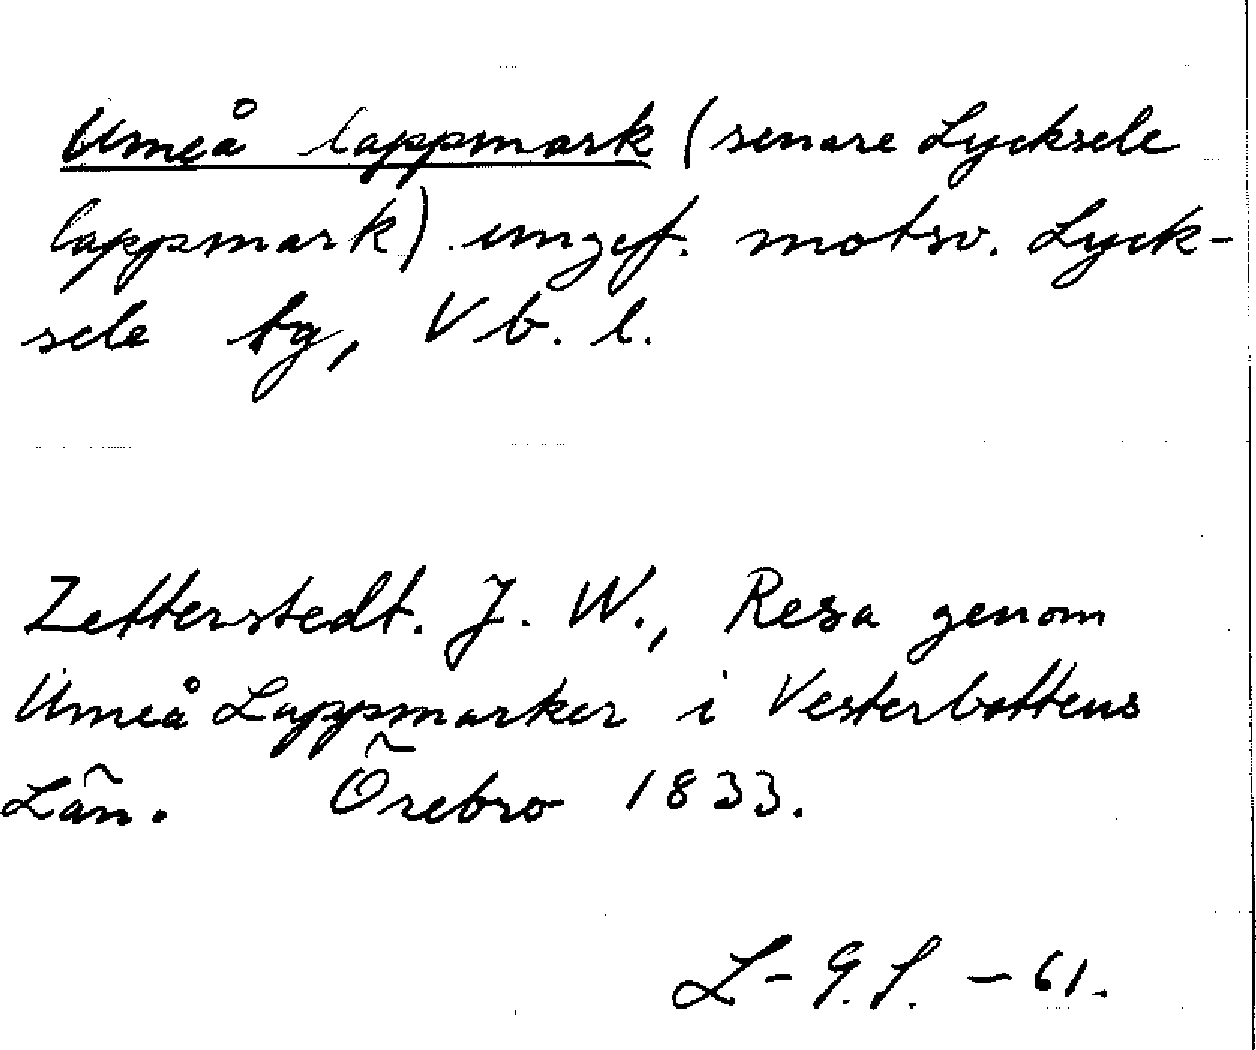 Umeå lappmark (senare Lycksele
lappmark) ungef. motsv. Lyck-
sele tg, Vb. l.
Zetterstedt. J. W., Resa genom
Umeå Lappmarker i Vesterbottens
Län. Örebro 1833.
L-G.S. - 61.